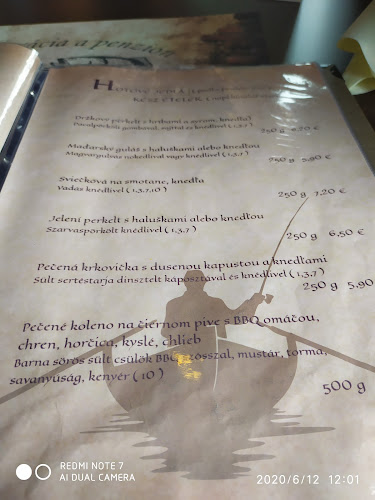 a penzión
250 g
Maďarský guláš s haluškami alebo knedľou
Magyargulyás nokedlival vagy knédlivel (1,3,7)
250 g 5,90 €
Sviečková na smotane, knedľa
Vadas knédlivel (1,3,7,10)
250 g 7,20 €
Jelení perkelt s haluškami alebo knedľou
Szarvaspörkölt knédlivel (1,3,7)
250 g 6,50 €
Pečená krkovička s dusenou kapustou a knedľami
Sült sertéstarja dinsztelt káposztával és knédlivel (1,3,7)
250 g 5,90
Pečené koleno na čiernom pive s BBQ omáčou,
chren, horčica, kyslé, chlieb
Barna sörös sült csülök BBQ szósszal, mustár, torma,
savanyúság, kenyér (10)
500 g
REDMI NOTE 7
AI DUAL CAMERA
2020/6/12 12:01